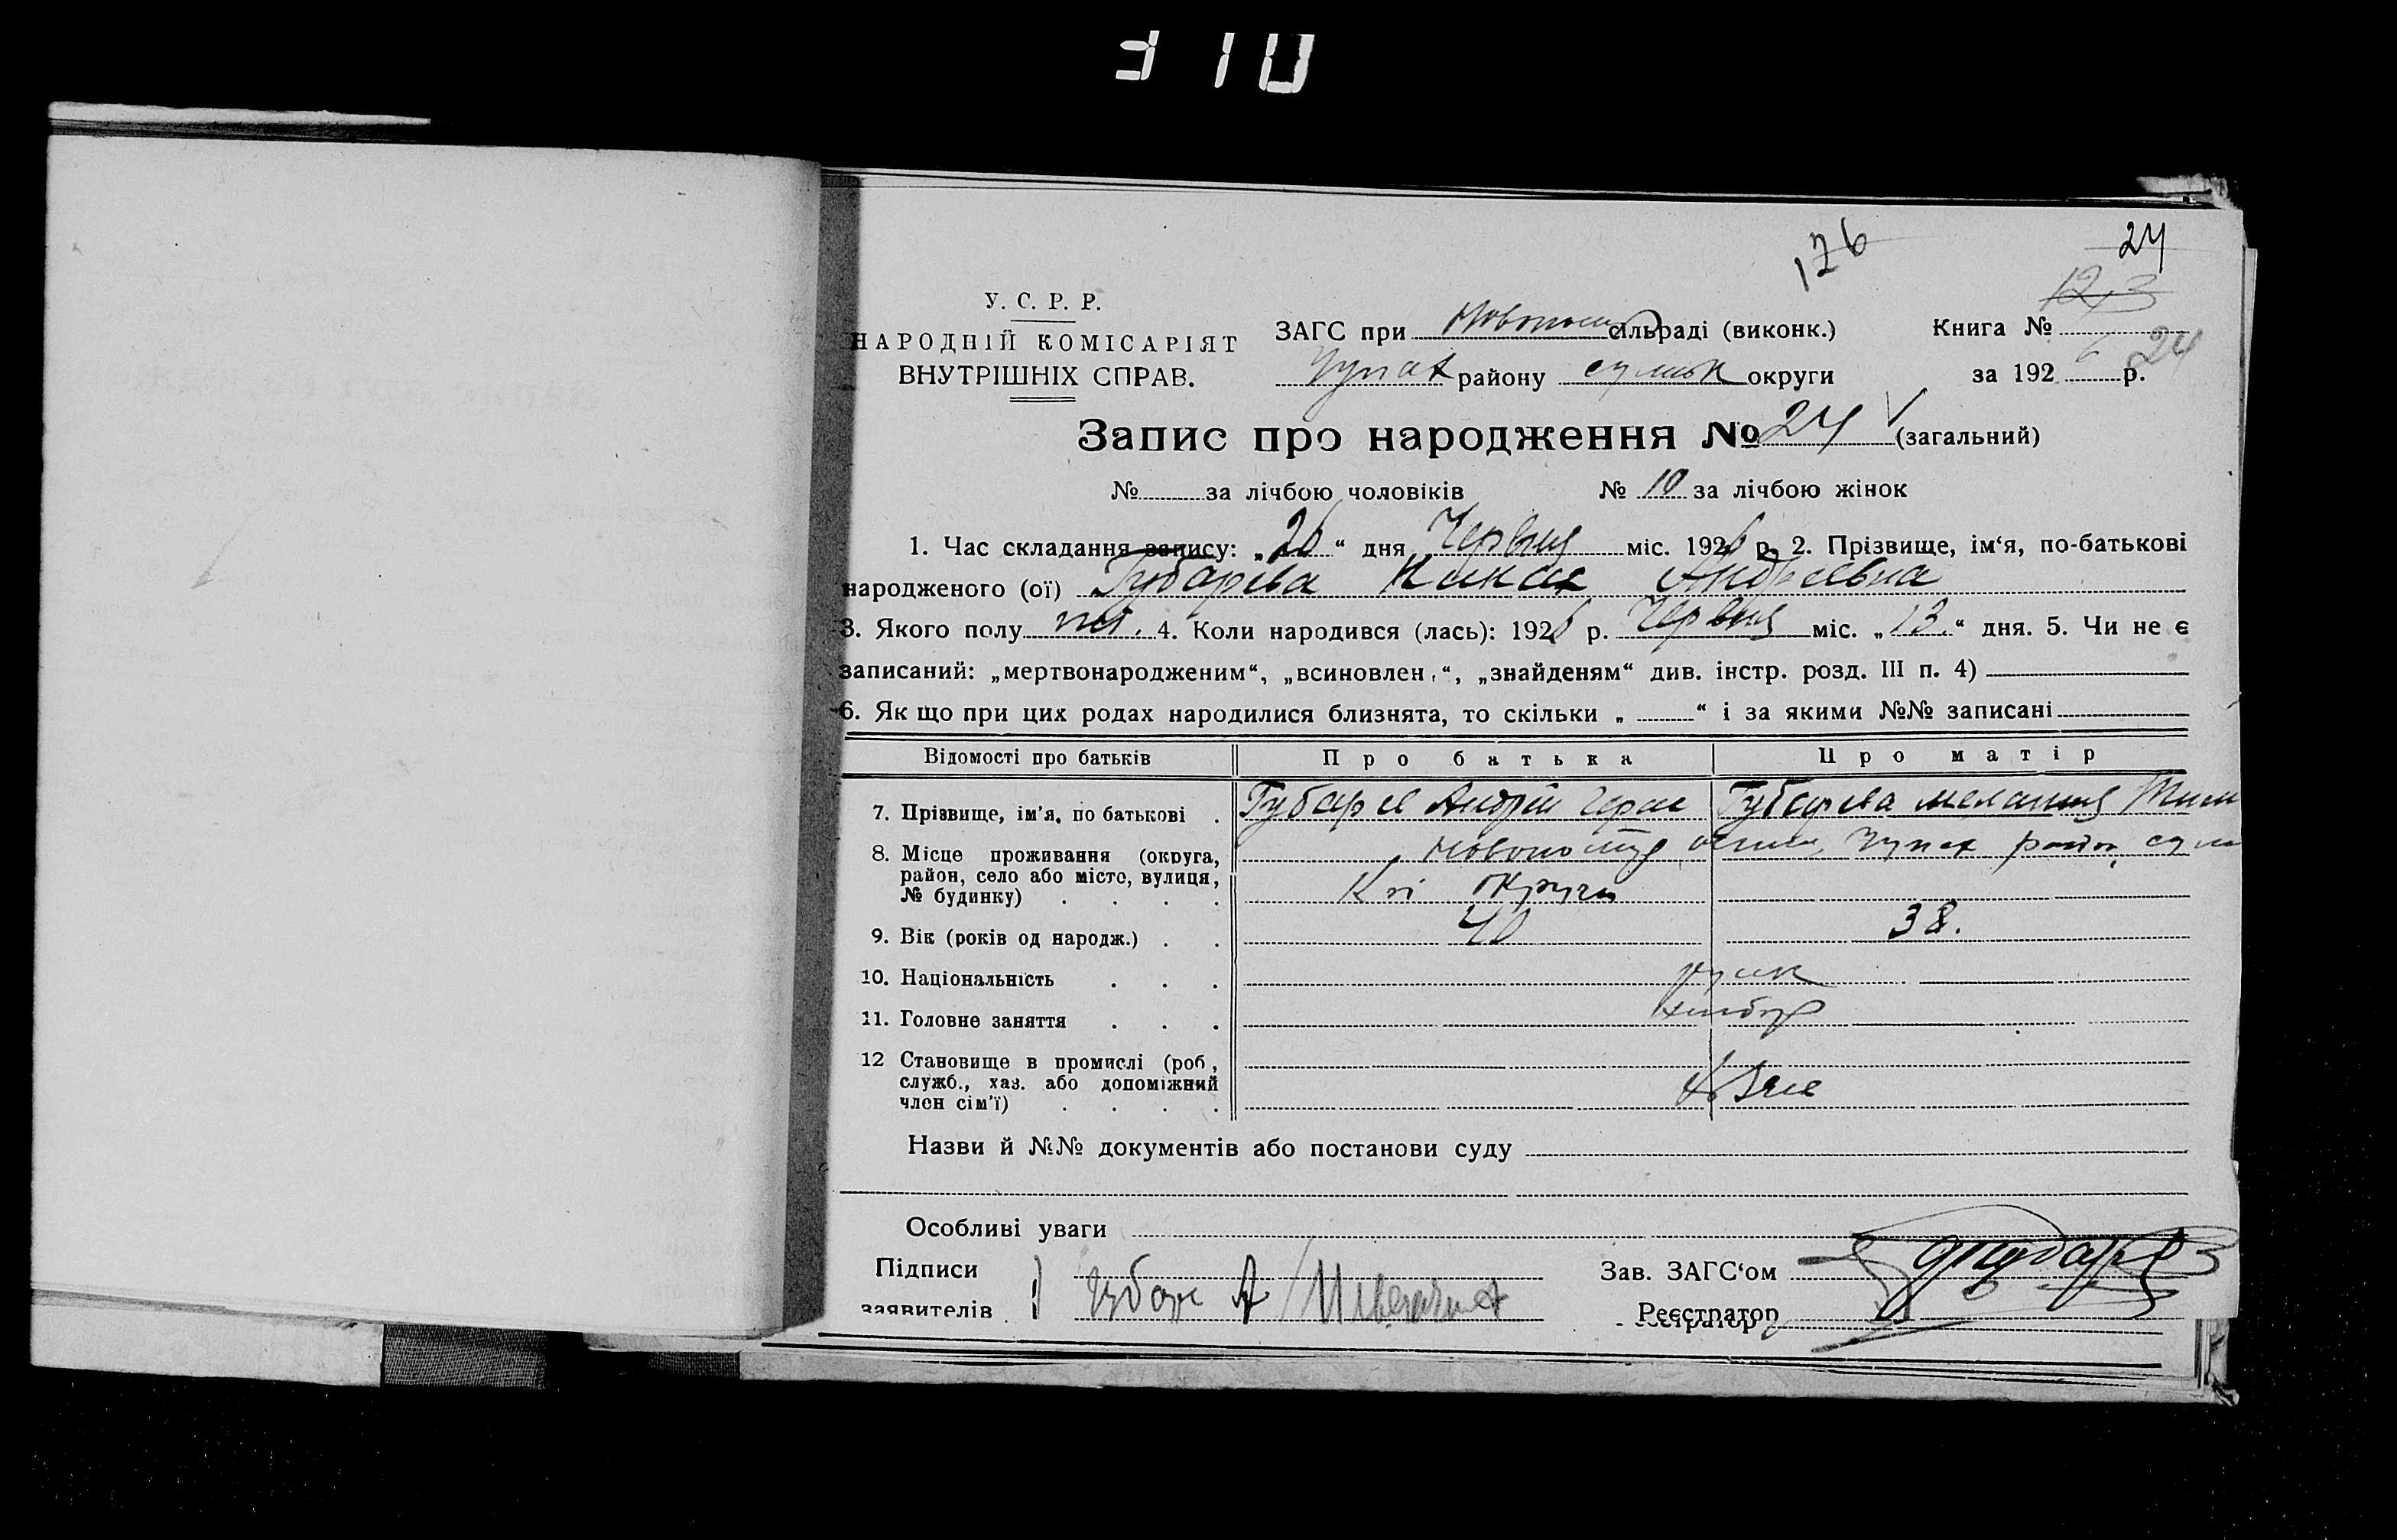 310
176
24
123
У. С. Р. Р.
НАРОДНІЙ КОМІСАРІЯТ
ВНУТРІШНІХ СПРАВ.
ЗАГС при сільраді (виконк.)
Книга № 24
району сумськ округи
за 1926 р.
Запис про народження № 24 (загальний)
№ за лічбою чоловіків № 10 за лічбою жінок
1. Час складання запису: „26“ дня Червня міс. 1926 р. 2. Прізвище, ім‘я, по-батькові
народженого (ої) Губарєва Андреевна
3. Якого полу жі. 4. Коли народився (лась): 1926 р. Червня міс. „13.“ дня. 5. Чи не є
записаний: „мертвонародженим“, „всиновлен.“, „знайденям“ див. інстр. розд. III п. 4)
6. Як що при цих родах народилися близнята, то скільки „ “ і за якими №№ записані
Відомості про батьків Про батька Про матір
7. Прізвище, ім’я, по батькові . Губарєв Андрій Герас Губарєва Меланія Тим
8. Місце проживання (округа,
район, село або місто, вулиця,
№ будинку) . . . . округи
9. Вік (років од народж.) . . 40 38.
10. Національність . . . руск
11. Головне заняття . . . хлібор
12 Становище в промислі (роб,
служб., хаз. або допоміжний
член сім’ї) . . . .
Назви й №№ документів або постанови суду
Особливі уваги
Підписи
заявителів
Губар А
Зав. ЗАГС‘ом
Реєстратор